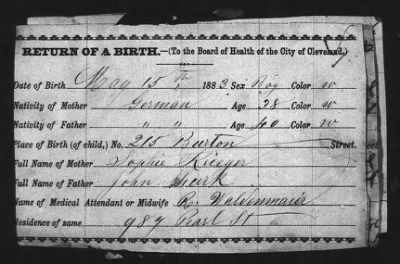 RETURN OF A BIRTH.—(To the Board of Health of the City of Cleveland.)
Date of Birth May 15th 1883 Sex Boy Color w
Nativity of Mother German Age 38 Color w
Nativity of Father " " Age 40 Color w
Place of Birth (of child,) No. 215 Burton Street.
Full Name of Mother Sophie Rieger
Full Name of Father John
Name of Medical Attendant or Midwife R. Waldenmaier
Residence of same 989 Pearl St